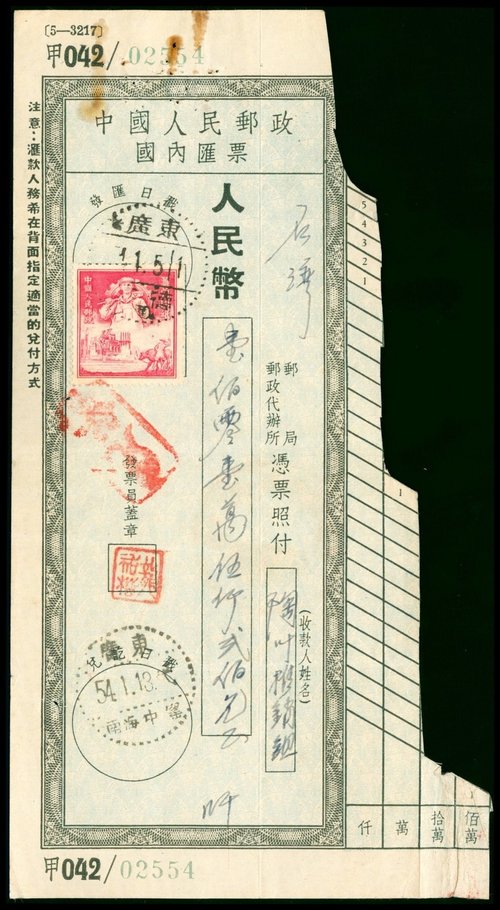 〔5—3217〕
甲042/02554
中國人民郵政
國內匯票
注意：滙款人務希在背面指定適當的兌付方式
收匯日戳
廣東
中國人民郵政
人民幣
壹佰零壹萬伍仟弍佰元正
郵局
郵政代辦所
憑票照付
(收款人姓名)
發票員蓋章
兌訖日戳
廣東
54.1.13.
南海中
5 4 3 2 1
1
1
仟
萬
拾萬
佰萬
甲042/02554